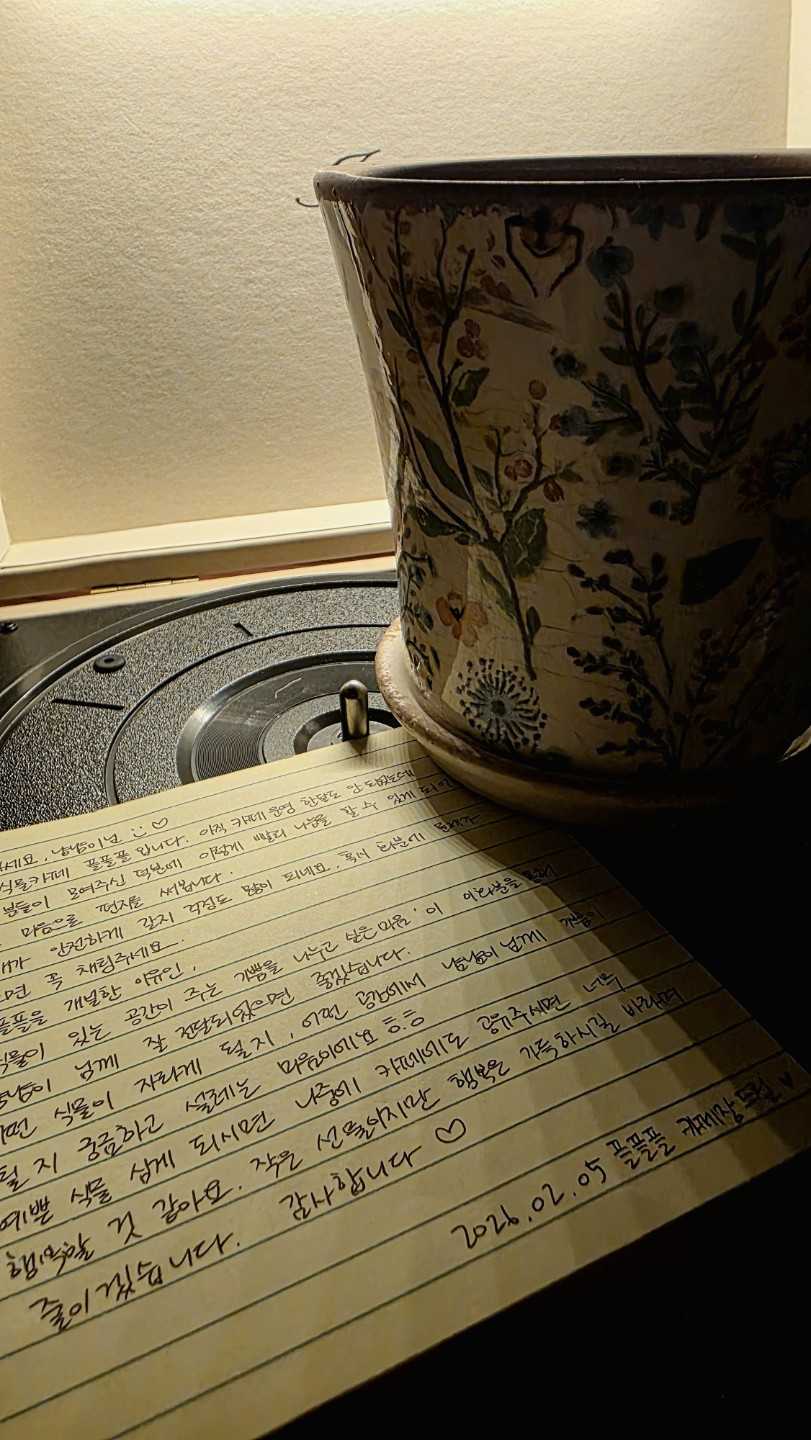 세요, 냠냠이님 :) ♡
식물카페 플플플 입니다. 아직 카페 운영 한달도 안 되었는데
분들이 모여주신 덕분에 이렇게 빨리 나눔을 할 수 있게 되어
마음으로 편지를 써봅니다.
가 안전하게 갈지 걱정도 많이 되네요, 혹시 화분에 문제가
면 꼭 채팅주세요.
플플을 개설한 이유인,
식물이 있는 공간이 주는 기쁨을 나누고 싶은 마음'이 이 화분을 통해
냠냠이 님께 잘 전달되었으면 좋겠습니다.
어떤 식물이 자라게 될지, 어떤 공간에서 냠냠이님께 기쁨이
될 지 궁금하고 설레는 마음이에요 ㅎㅎ
예쁜 식물 심게 되시면 나중에 카페에도 공유주시면 너무
행복할 것 같아요. 작은 선물이지만 행복은 가득하시길 바라며
줄이겠습니다. 감사합니다 ♡
2026.02.05 플플플 카페장 드림 ♥